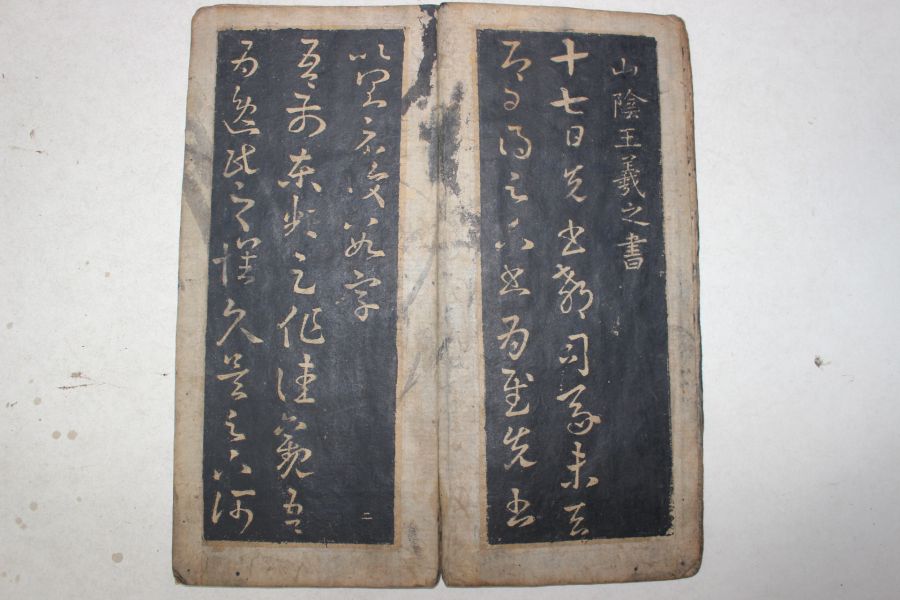 山陰王羲之書
十七日先書郗司馬未去
即日得足下書為慰先書
以具示復數字
吾前東粗足作佳觀吾
為逸民之懷久矣足下何
二